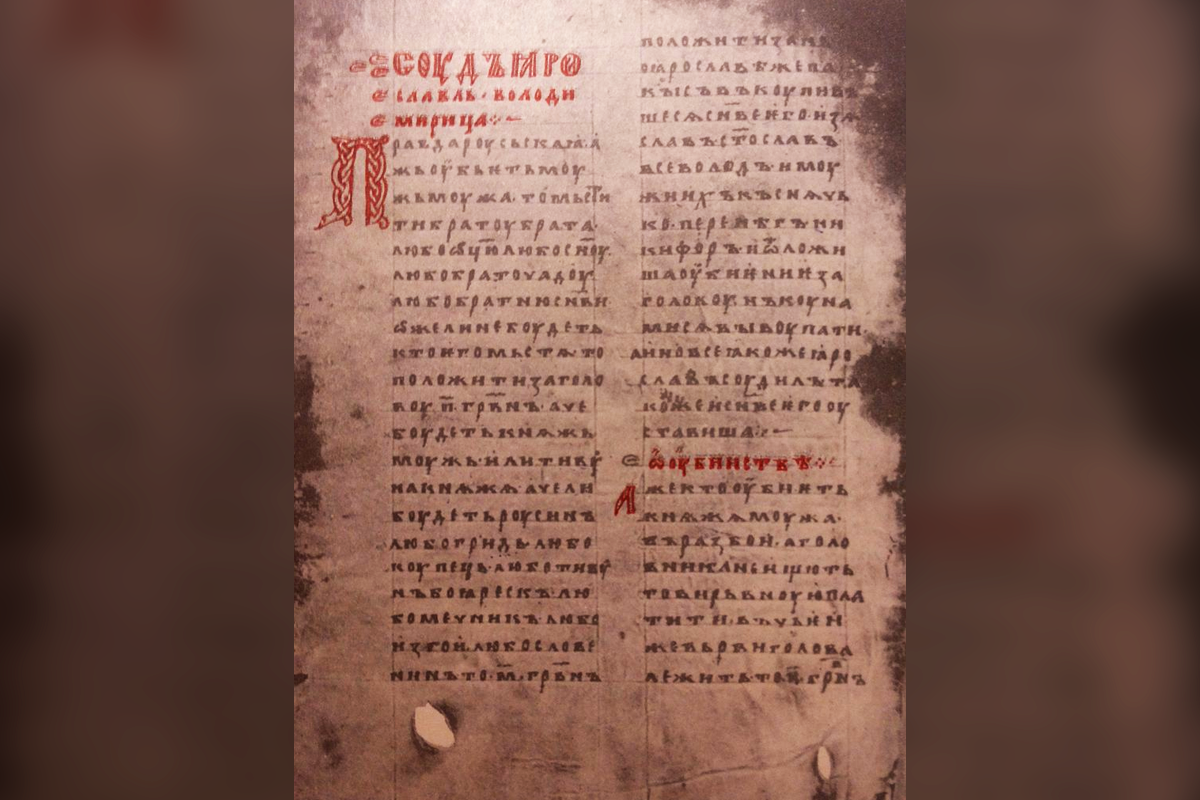 СОУДЪ ꙖРО
СЛАВЛЬ · ВОЛОДИ
МИРИЦА
Правда роусьскаꙗ · а
жь оубьѥть моу
жь моужа · то мьсти
ти братоу брата
любо ѿцю · любо сн҃оу ·
любо братоучадоу ·
любо братню сн҃ви
ѡже ли не боудеть
кто ѥго мьстѧ · то
положити за голо
воу · п҃ · грв҃нъ · аче
боудеть кнѧжь
моужь · или тивоу
на кнѧжѧ · аче ли
боудеть роусинъ
любо гридь · любо
коупець · любо тивоу
нъ боꙗрескъ · лю
бо мечникъ · любо
изгои · любо слове
нинъ · то · м҃ · грв҃нъ
положити за нь
ꙖрославѢ же па
кы съвъкоупивъ
шесѧ сн҃ве ѥго · изѧ
славъ · ст҃ославъ
всеволодъ · и моу
жи ихъ · къснѧчь
ко · перенѢгъ · ни
кифоръ · и ѿложи
ша оубиѥниѥ за
головоу · нъ коуна
ми сѧ выкоупати ·
а ино все ꙗкоже ꙗро
славъ соудилъ та
коже и сн҃ве ѥго оу
ставиша
Ѡ ОУБИИСТВѢ
Аже кто оубиѥть
кнѧжѧ моужа ·
въ разбои · а голо
вника не ищють
то вирьвноую пла
тити · въ чьѥи
же вьрви голова
лежить то · п҃ · грв҃нъ